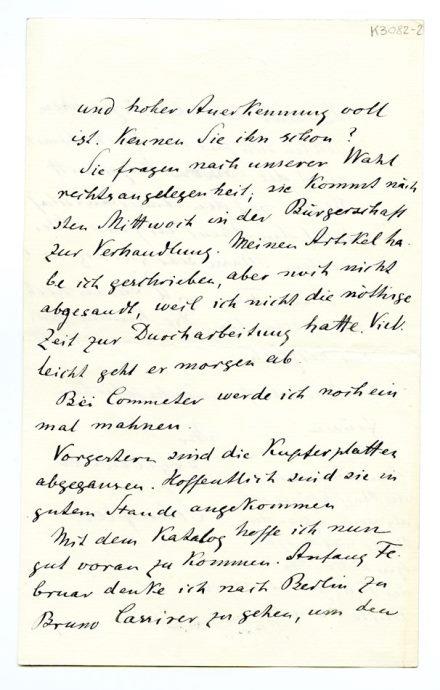 K3082-2
und hoher Anerkennung voll
ist. Kennen Sie ihn schon?
Sie fragen nach unserer Wahl
rechtsangelegenheit; sie kommt näch
sten Mittwoch in der Bürgerschaft
zur Verhandlung. Meinen Artikel ha-
be ich geschrieben, aber noch nicht
abgesandt, weil ich nicht die nöthige
Zeit zur Durcharbeitung hatte. Viel-
leicht geht er morgen ab.
Bei Commeter werde ich noch ein
mal mahnen.
Vorgestern sind die Kupferplatten
abgegangen. Hoffentlich sind sie in
gutem Stande angekommen
Mit dem Katalog hoffe ich nun
gut voran zu kommen. Anfang Fe-
bruar denke ich nach Berlin zu
Bruno Cassirer zu gehen, um den